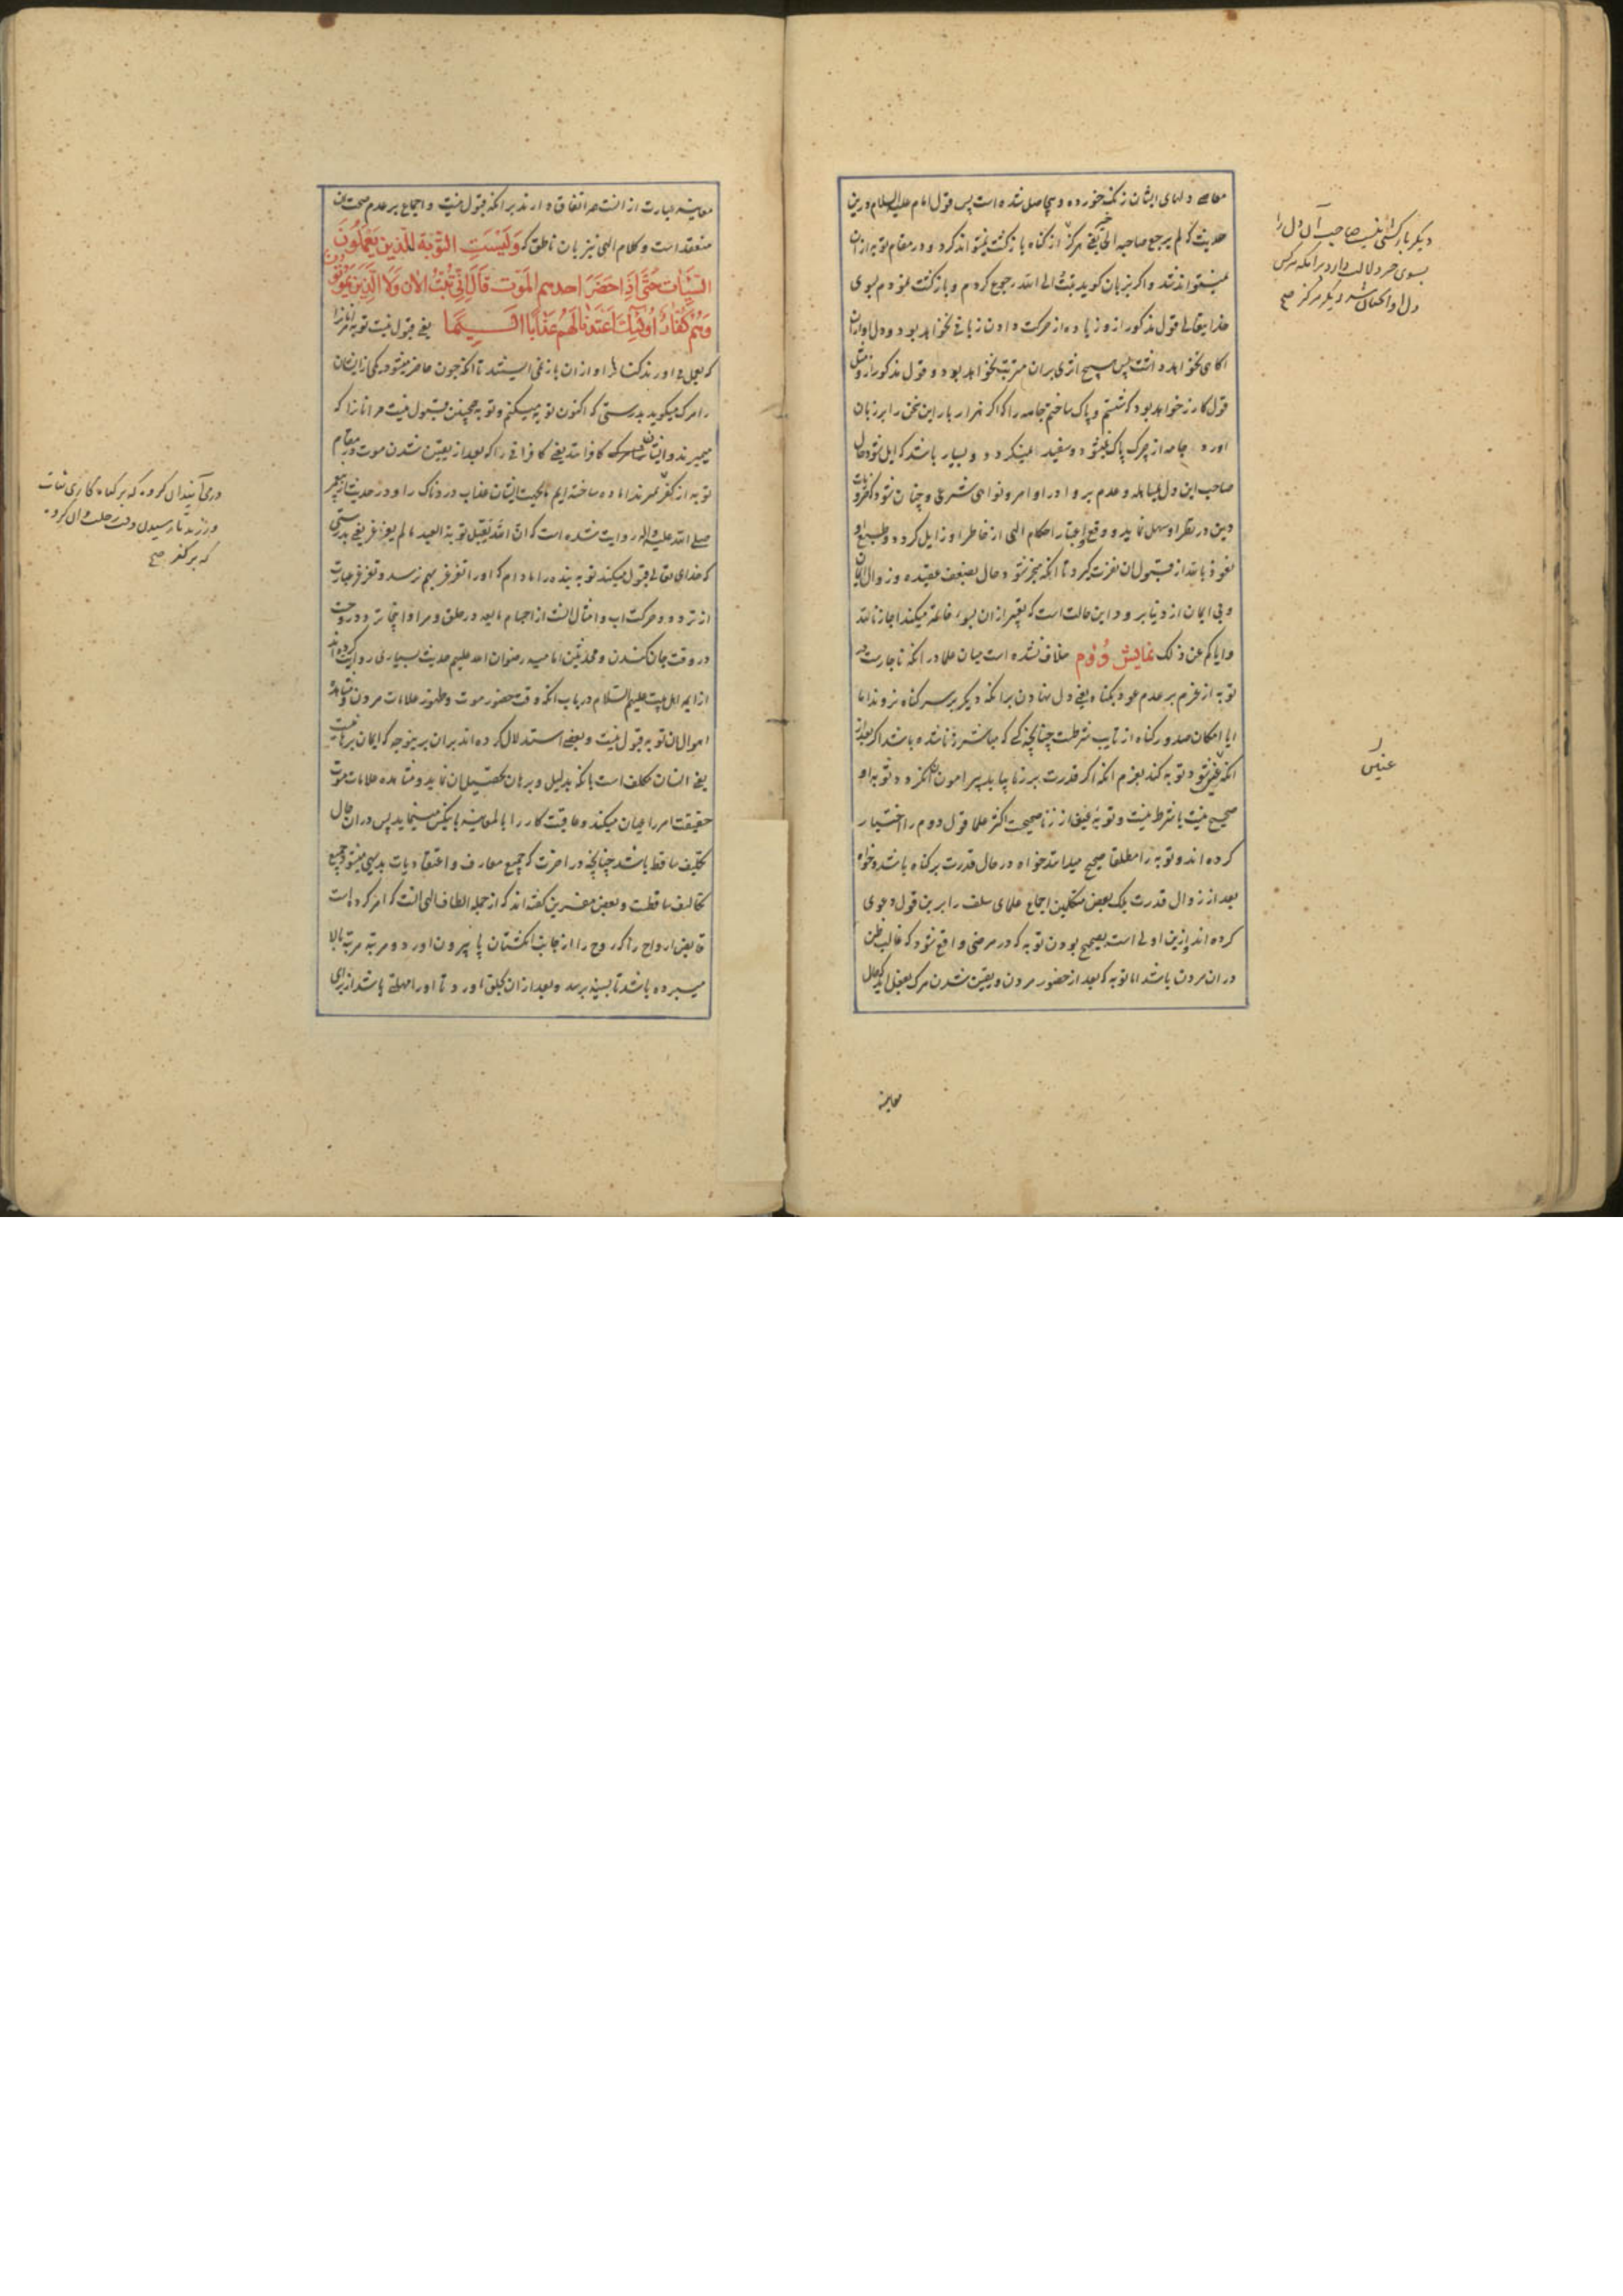 معاصی دلهای ایشان زنک خورده و بیحاصل شده است پس قول امام علیه السلام درین
حدیث که لم یرجع صاحبه الی خیر یعنی هرکز از کناه بازکشت نمیتواند کرد و در مقام توبه از ان
نمیتواند شد و اکر بزبان کوید تبت الی الله رجوع کردم و بازکشت نمودم بسوی
خدایتعالی قول مذکور ازو زیاده از حرکت دادن زبانی نخواهد بود و دل او از ان
اکاهی نخواهد داشت پس هیچ اثری بران مترتب نخواهد بود و قول مذکور ازو مثل
قول کازر خواهد بود که شستم و پاک ساختم جامه را که اکر هزار بار این سخن را بر زبان
اورد جامه از چرک پاک نمیشود و سفید نمیکردد و بسیار باشد که ایل شود حال
صاحب این دل بمباهله و عدم پروا در اوامر و نواهی شرعی و چنان شود که امر
دین در نظر او سهل نماید و وقع و اعتبار احکام الهی از خاطر او زایل کردد و طبع او
نعوذ بالله از قبول ان نفرت کیرد تا انکه منجر شود حال بضعف عقیده و زوال ایمان
و بی ایمان از دنیا برود و این حالت است که تعبیر از ان بسوء خاتمه میکند اجارنا الله
وایاکم عن ذلک نمایش دوم خلاف نشده است میان علما در انکه ناچارست در
توبه از عزم بر عدم عود بکناه یعنی دل نهادن برانکه دیکر بر سر کناه نروند اما
ایا امکان صدور کناه از تایب شرطست چنانچه کسی که مباشر زنا شده باشد اکر بعد از
انکه عنین شود توبه کند بعزم انکه اکر قدرت بر زنا بیابد پیرامون ان نکردد توبه او
صحیح نیست یا شرط نیست و توبه عنین از زنا صحیحست اکثر علما قول دوم را اختیار
کرده اند و توبه را مطلقا صحیح میدانند خواه در حال قدرت بر کناه باشد و خواه
بعد از زوال قدرت بلکه بعضی متکلمین اجماع علمای سلف را برین قول دعوی
کرده اند و ازین اولی است بصحیح بودن توبه که در مرضی واقع شود که غالب ظن
دران مردن باشد اما توبه که بعد از حضور مردن و یقین شدن مرک بعمل اید که حال
معاینه
دیکر بازکشتی نیست صاحب آن دل را
بسوی خیر دلالت دارد برانکه هرکس
دل او باین حال شد دیکر هرکز صح
عنین
معاینه عبارت از انست هم اتفاق دارند برانکه قبول نیست و اجماع بر عدم صحت ان
منعقد است و کلام الهی نیز بان ناطق که وَلَیْسَتِ التَّوْبَةُ لِلَّذِینَ یَعْمَلُونَ
السَّیِّئَاتِ حَتَّی إِذَا حَضَرَ احدهم المَوْت قَالَ اِنِّی تُبْتُ الْآنَ وَلَا الَّذِینَ یَمُوتُونَ
وَهُمْ کُفَّارٌ اُولَئِکَ اَعْتَدْنَا لَهُمْ عَذَابًا اَلِیمًا یعنی قبول نیست توبه مرانانرا
که بعمل می اورند کناهان را و از ان باز نمی ایستند تا انکه چون حاضر میشود یکی از ایشان
را مرک میکوید بدرستی که اکنون توبه میکنم و توبه همچنین مقبول نیست مرانانرا که
میمیرند و ایشان کافرانند یعنی کافرانی را که بعد از یقین شدن موت در مقام
توبه از کفر میرند اماده ساخته ایم بجهت ایشان عذاب دردناک را و در حدیث از پیغمبر
صلی الله علیه واله روایت شده است که ان الله یقبل توبة العبد ما لم یغرغر یعنی بدرستی
که خدای تعالی قبول میکند توبه بنده را مادام که او را تغرغر بهم نرسد و تغرغر عبارت
از تردد و حرکت اب و امثال انست از اجسام مایعه در حلق و مراد اینجا تردد روحست
در وقت جان کندن و محدثین امامیه رضوان الله علیهم حدیث بسیاری روایت کرده اند
از ایمه اهل بیت علیهم السلام در باب انکه وقت حضور موت و ظهور علامات مردن و مشاهده
اهوال ان توبه قبول نیست و بعضی استدلال کرده اند بران برینوجه که ایمان برهانیست
یعنی انسان مکلف است بانکه بدلیل و برهان تحصیل ان نماید و مشاهده علامات موت
حقیقت امر را عیان میکند و عاقبت کار را بالمعاینه باینکس مینماید پس دران حال
تکلیف ساقط باشد چنانچه در اخرت که جمیع معارف و اعتقادیات بدیهی میشود جمیع
تکالیف ساقطست و بعضی مفسرین کفته اند که از جمله الطاف الهی انست که امر کرده است
قابض ارواح را که روح را از جانب انکشتان پا بیرون اورد و مرتبه مرتبه بالا
میبرده باشد تا بسینه برسد و بعد از ان بحلق اورد تا او را مهلتی باشد از برای
در می آیند ان کروه که بر کناهکاری ثبات
ورزند تا رسیدن وقت رحلت و ان کروه
که بر کفر صح